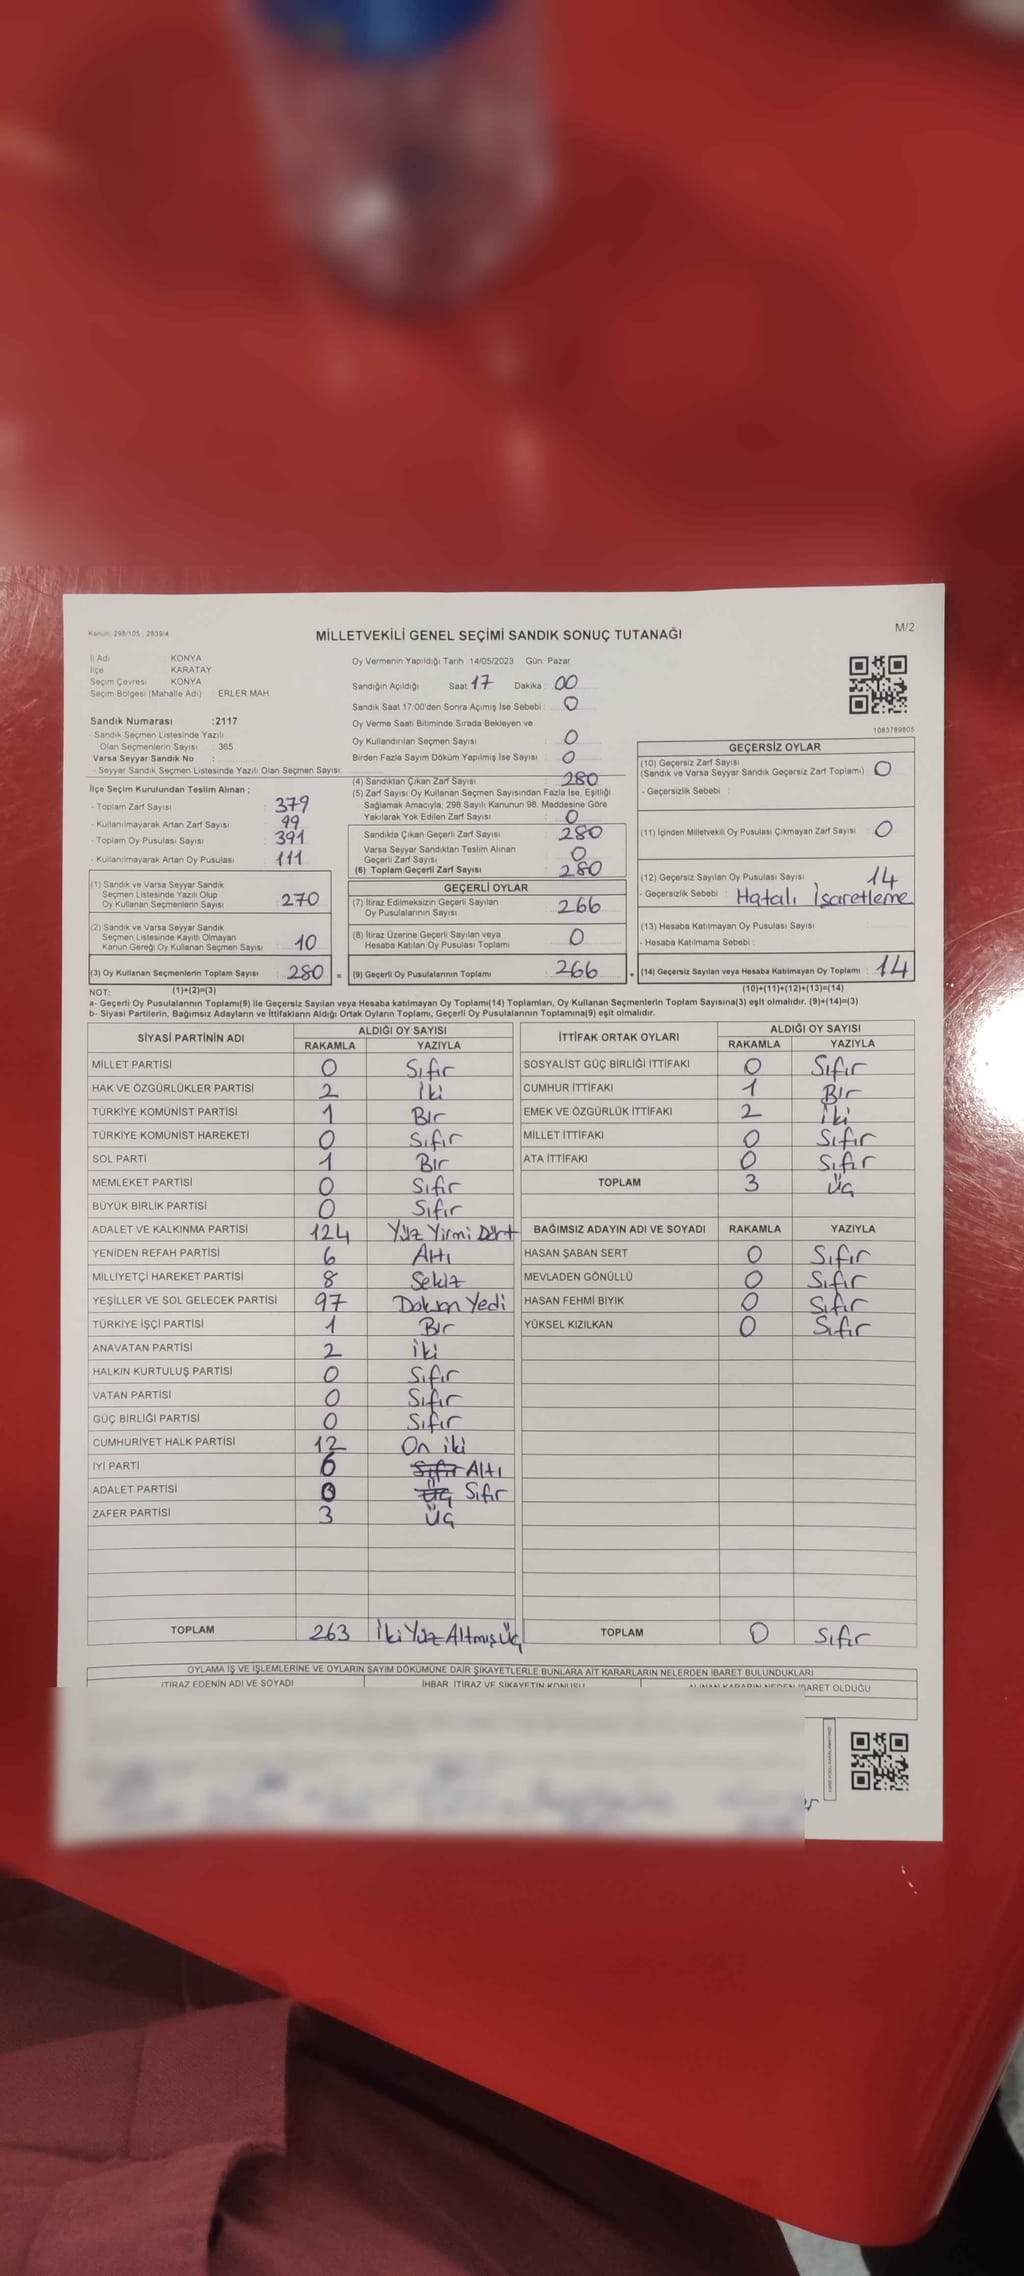 Kanun: 298/105 , 2839/4
MİLLETVEKİLİ GENEL SEÇİMİ SANDIK SONUÇ TUTANAĞI
M/2
İl Adı KONYA
İlçe KARATAY
Seçim Çevresi KONYA
Seçim Bölgesi (Mahalle Adı) : ERLER MAH
Sandık Numarası :2117
- Sandık Seçmen Listesinde Yazılı
Olan Seçmenlerin Sayısı : 365
Varsa Seyyar Sandık No :
- Seyyar Sandık Seçmen Listesinde Yazılı Olan Seçmen Sayısı:
İlçe Seçim Kurulundan Teslim Alınan ;
- Toplam Zarf Sayısı : 379
- Kullanılmayarak Artan Zarf Sayısı : 99
- Toplam Oy Pusulası Sayısı : 391
- Kullanılmayarak Artan Oy Pusulası : 111
(1) Sandık ve Varsa Seyyar Sandık
Seçmen Listesinde Yazılı Olup
Oy Kullanan Seçmenlerin Sayısı : 270
(2) Sandık ve Varsa Seyyar Sandık
Seçmen Listesinde Kayıtlı Olmayan
Kanun Gereği Oy Kullanan Seçmen Sayısı : 10
(3) Oy Kullanan Seçmenlerin Toplam Sayısı : 280 =
Oy Vermenin Yapıldığı Tarih 14/05/2023 Gün: Pazar
Sandığın Açıldığı Saat 17 Dakika : 00
Sandık Saat 17:00'den Sonra Açımış İse Sebebi : 0
Oy Verme Saati Bitiminde Sırada Bekleyen ve
Oy Kullandırılan Seçmen Sayısı : 0
Birden Fazla Sayım Döküm Yapılmış İse Sayısı : 0
(4) Sandıktan Çıkan Zarf Sayısı : 280
(5) Zarf Sayısı Oy Kullanan Seçmen Sayısından Fazla İse, Eşitliği
Sağlamak Amacıyla, 298 Sayılı Kanunun 98. Maddesine Göre
Yakılarak Yok Edilen Zarf Sayısı : 0
Sandıkta Çıkan Geçerli Zarf Sayısı : 280
Varsa Seyyar Sandıktan Teslim Alınan
Geçerli Zarf Sayısı : 0
(6) Toplam Geçerli Zarf Sayısı : 280
GEÇERLİ OYLAR
(7) İtiraz Edilmeksizin Geçerli Sayılan
Oy Pusulalarının Sayısı : 266
(8) İtiraz Üzerine Geçerli Sayılan veya
Hesaba Katılan Oy Pusulası Toplamı : 0
(9) Geçerli Oy Pusulalarının Toplamı : 266 +
1083789805
GEÇERSİZ OYLAR
(10) Geçersiz Zarf Sayısı
(Sandık ve Varsa Seyyar Sandık Geçersiz Zarf Toplamı) : 0
- Geçersizlik Sebebi :
(11) İçinden Milletvekili Oy Pusulası Çıkmayan Zarf Sayısı : 0
(12) Geçersiz Sayılan Oy Pusulası Sayısı : 14
- Geçersizlik Sebebi : Hatalı İşaretleme
(13) Hesaba Katılmayan Oy Pusulası Sayısı :
- Hesaba Katılmama Sebebi :
(14) Geçersiz Sayılan veya Hesaba Katılmayan Oy Toplamı : 14
NOT: (1)+(2)=(3) (10)+(11)+(12)+(13)=(14)
a- Geçerli Oy Pusulalarının Toplamı(9) ile Geçersiz Sayılan veya Hesaba katılmayan Oy Toplamı(14) Toplamları, Oy Kullanan Seçmenlerin Toplam Sayısına(3) eşit olmalıdır. (9)+(14)=(3)
b- Siyasi Partilerin, Bağımsız Adayların ve İttifakların Aldığı Ortak Oyların Toplamı, Geçerli Oy Pusulalarının Toplamına(9) eşit olmalıdır.
SİYASİ PARTİNİN ADI ALDIĞI OY SAYISI
RAKAMLA YAZIYLA
MİLLET PARTİSİ 0 Sıfır
HAK VE ÖZGÜRLÜKLER PARTİSİ 2 İki
TÜRKİYE KOMÜNİST PARTİSİ 1 Bır
TÜRKİYE KOMÜNİST HAREKETİ 0 Sıfır
SOL PARTİ 1 Bır
MEMLEKET PARTİSİ 0 Sıfır
BÜYÜK BİRLİK PARTİSİ 0 Sıfır
ADALET VE KALKINMA PARTİSİ 124 Yüz Yirmi Dört
YENİDEN REFAH PARTİSİ 6 Altı
MİLLİYETÇİ HAREKET PARTİSİ 8 Sekiz
YEŞİLLER VE SOL GELECEK PARTİSİ 97 Doksan Yedi
TÜRKİYE İŞÇİ PARTİSİ 1 Bır
ANAVATAN PARTİSİ 2 iki
HALKIN KURTULUŞ PARTİSİ 0 Sıfır
VATAN PARTİSİ 0 Sıfır
GÜÇ BİRLİĞİ PARTİSİ 0 Sıfır
CUMHURİYET HALK PARTİSİ 12 On iki
İYİ PARTİ 6 Sıfır Altı
ADALET PARTİSİ 0 Üç Sıfır
ZAFER PARTİSİ 3 Üç
TOPLAM 263 İki Yüz Altmış Üç
İTTİFAK ORTAK OYLARI ALDIĞI OY SAYISI
RAKAMLA YAZIYLA
SOSYALİST GÜÇ BİRLİĞİ İTTİFAKI 0 Sıfır
CUMHUR İTTİFAKI 1 Bır
EMEK VE ÖZGÜRLÜK İTTİFAKI 2 İki
MİLLET İTTİFAKI 0 Sıfır
ATA İTTİFAKI 0 Sıfır
TOPLAM 3 Üç
BAĞIMSIZ ADAYIN ADI VE SOYADI RAKAMLA YAZIYLA
HASAN ŞABAN SERT 0 Sıfır
MEVLADEN GÖNÜLLÜ 0 Sıfır
HASAN FEHMİ BIYIK 0 Sıfır
YÜKSEL KIZILKAN 0 Sıfır
TOPLAM 0 Sıfır
OYLAMA İŞ VE İŞLEMLERİNE VE OYLARIN SAYIM DÖKÜMÜNE DAİR ŞİKAYETLERLE BUNLARA AİT KARARLARIN NELERDEN İBARET BULUNDUKLARI
İTİRAZ EDENİN ADI VE SOYADI İHBAR, İTİRAZ VE ŞİKAYETİN KONUSU ALINAN KARARIN NEDEN İBARET OLDUĞU